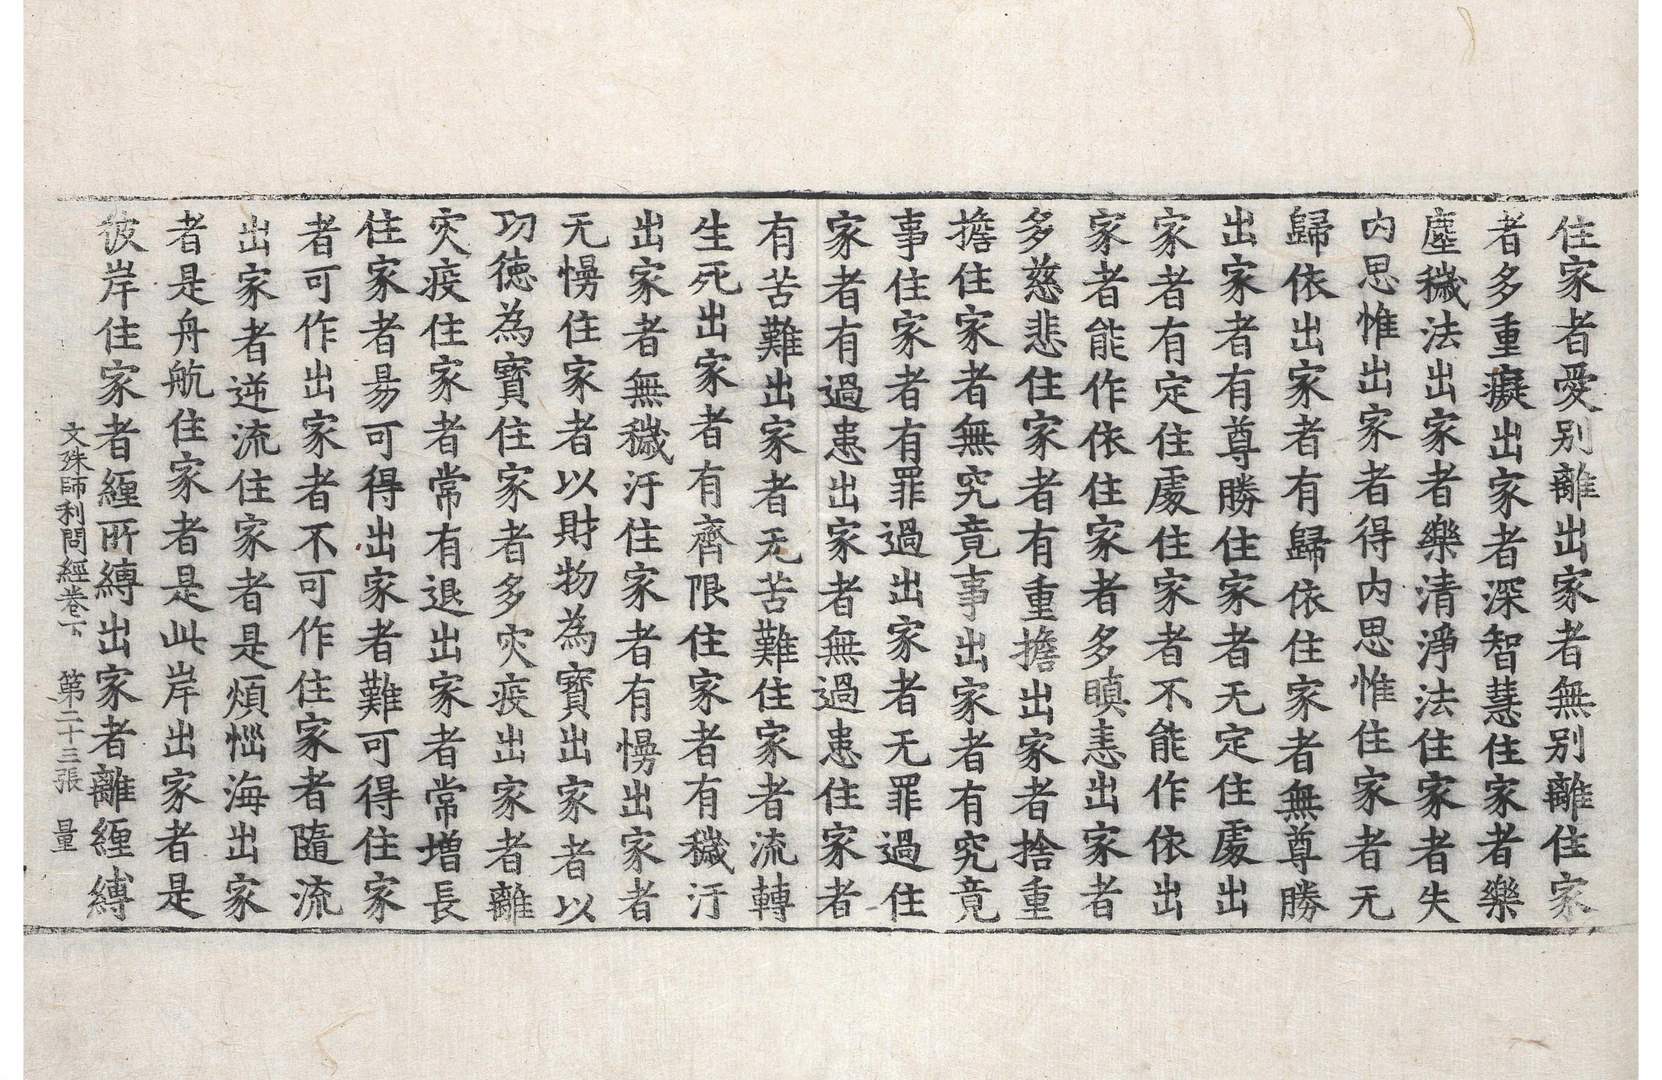 住家者愛別離出家者無別離住家
者多重癡出家者深智慧住家者樂
塵穢法出家者樂清淨法住家者失
内思惟出家者得内思惟住家者无
歸依出家者有歸依住家者無尊勝
出家者有尊勝住家者无定住處出
家者有定住處住家者不能作依出
家者能作依住家者多瞋恚出家者
多慈悲住家者有重擔出家者捨重
擔住家者無究竟事出家者有究竟
事住家者有罪過出家者无罪過住
家者有過患出家者無過患住家者
有苦難出家者无苦難住家者流轉
生死出家者有齊限住家者有穢汙
出家者無穢汙住家者有慢出家者
无慢住家者以財物為寳出家者以
功德為寳住家者多灾疫出家者離
灾疫住家者常有退出家者常增長
住家者易可得出家者難可得住家
者可作出家者不可作住家者隨流
出家者逆流住家者是煩惱海出家
者是舟航住家者是此岸出家者是
彼岸住家者纏所縛出家者離纏縛
文殊師利問經卷下 第二十三張 量